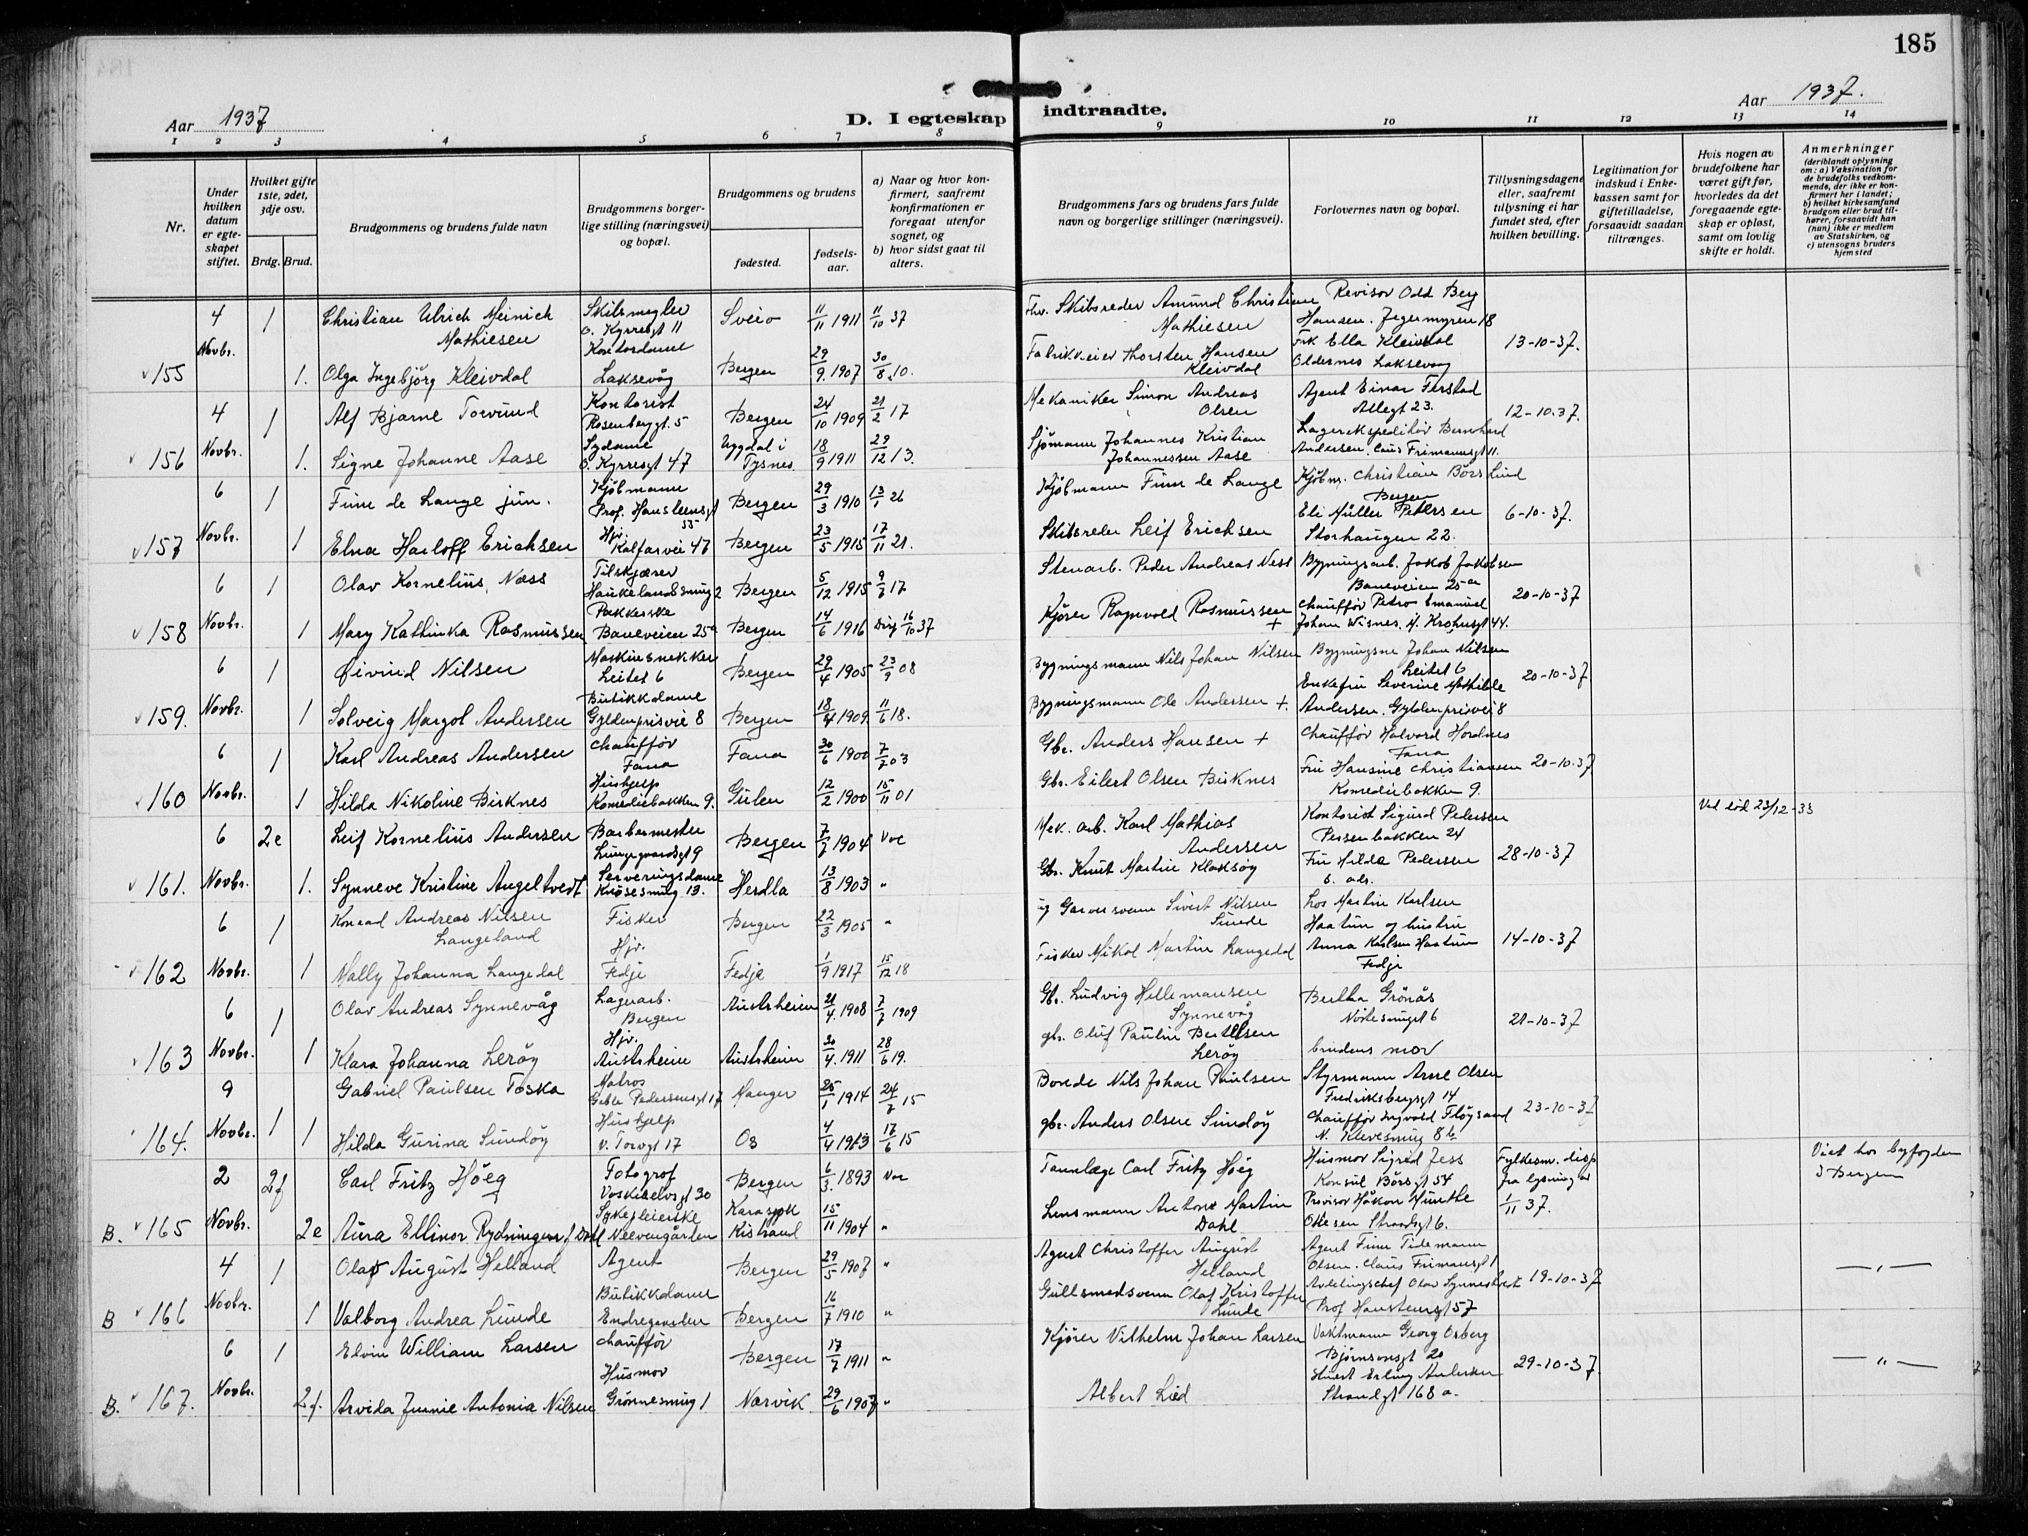 185
Aar 1937
D. I egteskap indtraadte.
Aar 1937.
1 2 3 4 5 6 7 8 9 10 11 12 13 14
Nr.
Under hvilken datum er egteskapet stiftet.
Hvilket gifte 1ste, 2det, 3dje osv.
Brdg. Brud.
Brudgommens og brudens fulde navn
Brudgommens borgerlige stilling (næringsvei) og bopæl.
Brudgommens og brudens
fødested.
fødselsaar.
a) Naar og hvor konfirmert, saafremt konfirmationen er foregaat utenfor sognet, og
b) hvor sidst gaat til alters.
Brudgommens fars og brudens fars fulde navn og borgerlige stillinger (næringsvei).
Forlovernes navn og bopæl.
Tillysningsdagene eller, saafremt tillysning ei har fundet sted, efter hvilken bevilling.
Legitimation for indskud i Enkekassen samt for giftetilladelse, forsaavidt saadan tiltrænges.
Hvis nogen av brudefolkene har været gift før, hvorledes da det foregaaende egteskap er opløst, samt om lovlig skifte er holdt.
Anmerkninger
(deriblandt oplysning om: a) Vaksination for de brudefolks vedkommende, der ikke er konfirmert her i landet; b) hvilket kirkesamfund brudgom eller brud tilhører, forsaavidt han (hun) ikke er medlem av Statskirken, og c) utensogns bruders hjemsted
4 1 Christian Ulrich Meinich Mathiesen Skibsmegler O. Kyrresgt 11 Sveio 11/11 1911 11/10 37 Skibsreder Amund Christian Mathiesen Revisor Odd Berg Hansen. Jegermyren 18
v 155 Novbr. 1. Olga Ingebjörg Kleivdal Kontordame Laksevåg Bergen 29/9 1907 30/8 10. Fabrikkeier Thorsten Hansen Kleivdal Frk Ella Kleivdal Oldernes Laksevaag 13-10-37.
4 1 Alf Bjarne Torvund Kontorist Rosenbergt. 5 Bergen 24/10 1909 21/2 17 Mekaniker Simon Andreas Olsen Agent Einar Ferstad Allegt 23. 12-10.37.
v 156 Novbr. 1. Signe Johanne Aase Sydame O. Kyrresgt 47 Uggdal i Tysnes 18/9 1911 29/12 13. Sjømann Johannes Kristian Johannessen Aase Lagerekspeditör Bernhard Andersen. Claus Frimannsgt 11.
6 1 Finn de Lange jun. Kjøbmann Prof. Hansteensgt 55 Bergen 29/3 1910 13/1 26 Kjøbmann Finn de Lange Kjøbm. Christian Børs Lind Bergen
v 157 Novbr. 1 Elna Harloff Erichsen Hjv. Kalfarvei 47 Bergen 23/5 1915 17/11 21. Skibsreder Leif Erichsen Eli Müller Petersen Storhaugen 22. 6-10-37.
6 1 Olav Kornelius Næss Tilskjærer Haukelandssmug 2 Bergen 5/12 1915 9/7 17 Stenarb. Peder Andreas Ness Bygningsarb. Jakob Jakobsen Baneveien 25a
v 158 Novbr. 1 Mary Kathinka Rasmussen Pakkerske Baneveien 25a Bergen 14/6 1916 16/10 37 Kjører Ragnvald Rasmussen + Chauffør Petro Emanuel Johan Wisnes. M. Krohnsgt 44. 20-10-37
6 1 Øivind Nilsen Maskinsnekker Leitet 6 Bergen 29/4 1905 23/9 08 Bygningsmann Nils Johan Nilsen Bygningsm Johan Nilsen Leitet 6 20-10-37
v 159. Novbr. 1 Solveig Margot Andersen Butikkdame Gyldenprisvei 8 Bergen 18/4 1909. 11/6 18. Bygningsmann Ole Andersen +. Enkefru Severine Mathilde Andersen. Gyldenprisvei 8
6 1 Karl Andreas Andersen Chauffør Fana Fana 30/6 1900 7/7 03 Gbr. Anders Hansen + Chauffør Halvard Hordnes Fana 20-10-37
v 160 Novbr. 1 Hilda Nikoline Birknes Hushjelp Komediebakken 9. Gulen 12/2 1900 15/11 01 Gbr. Eilert Olsen Birknes Fru Hansine Christiansen Komediebakken 9.
6 2e Leif Kornelius Andersen Barbermester Lungegaardsgt 9 Bergen 7/7 1904 Vac Mek. arb. Karl Mathias Andersen Kontorist Sigurd Pedersen Persenbakken 24 Ved død 23/12-33
v 161. Novbr. 1. Synneve Kristine Angeltvedt Serveringsdame Knøsesmug 13. Herdla 13/8 1903 " Gbr. Knut Martin Klaksøy Fru Hilda Pedersen s. adr. 28-10-37
6 1 Konrad Andreas Nilsen Langeland Fisker Bergen 22/3 1905 " Garversvenn Sivert Nilsen Sunde Los Martin Karlsen Haatun og hustru
v 162 Novbr. 1 Wally Johanna Langedal Hjv. Fedje Fedje 1/9 1917 15/12 18 Fisker Mikal Martin Langedal Anna Karlsen Haatun Fedje 14-10-37
6 1 Olav Andreas Synnevåg Lagerarb. Bergen Austrheim 21/4 1908 7/7 1909 Gbr. Ludvig Hellemansen Synnevåg Bertha Grönås Nöstesmuget 6 21-10-37
v 163 Novbr. 1 Klara Johanna Lerøy Hjv. Austrheim Austrheim 30/4 1911 28/6 19. gbr. Oluf Paulin Bertelsen Lerøy brudens mor
9 1 Gabriel Paulsen Toska Matros Geble Pedersensgt 17 Manger 25/1 1914 24/7 15 Bonde Nils Johan Paulsen Styrmann Arne Olsen Fredriksbergsgt 14
164. Novbr. 1 Hilda Gurina Sundøy Hushjelp V. Torvgt 17 Os 4/4 1913 17/6 15 gbr. Anders Olsen Sundøy Chauffør Ingvald Fløysand N. Klevesmug 8b 23-10-37
2 2f Carl Fritz Höeg Fotograf Vaskerelvsgt 30 Bergen 6/3. 1893 Vac Tannlæge Carl Fritz Höeg Husmor Sigrid Jess Konsul Børsgt 54 Fylkesm. disp fra lysning av 1/11 37. Viet hos byfogden i Bergen
B. v 165 Novbr. 2e Aura Ellinor Rydningen f. Dahl Sykepleierske Neevengården Karasjok Kistrand 15/11 1904 " Lensmann Anton Martin Dahl Provisor Håkon Munthe Ottesen Strandgt 6.
4 1 Olaf August Helland Agent Bergen 29/5 1907 " Agent Christoffer August Helland Agent Finn Tidemann Olsen. Claus Frimansgt 1 — " —
B v 166 Novbr. 1 Valborg Andrea Lunde Butikkdame Endregaarden Bergen 16/7 1910 " Gullsmedsvenn Olaf Kristoffer Lunde Avdelingschef Olav Synnestvedt Prof Hansteensgt 57 19-10-37
6 1 Elvin William Larsen Chauffør Bergen 17/7 1911 " Kjører Vilhelm Johan Larsen Vaktmann Georg Osberg Bjørnsonsgt 20 29-10-37. — " —
B. v 167. Novbr. 2f. Arvida Jennie Antonia Nilsen Husmor Grønnesmug 1 Narvik 29/6 1907 " Albert Lied Erling Andersen Strandgt 168 a.